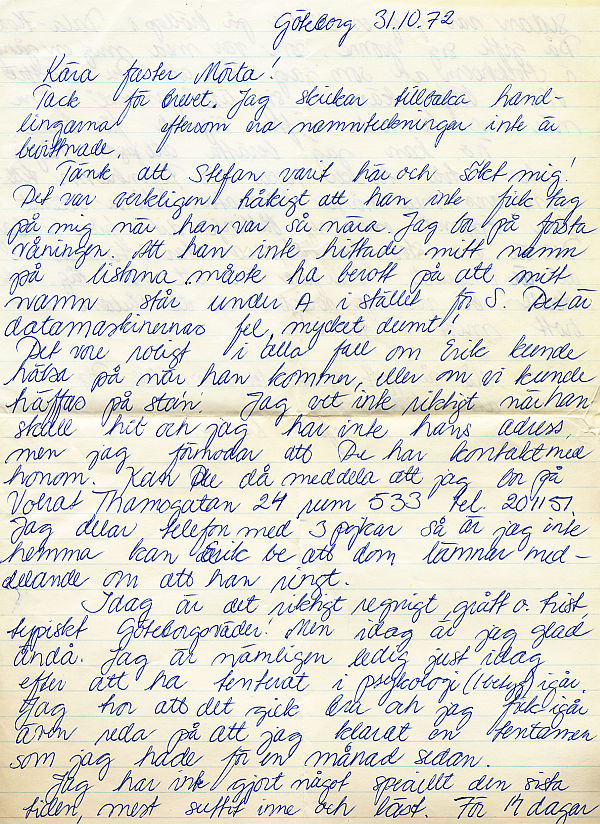 Göteborg 31.10.72
Kära faster Märta!
Tack för brevet. Jag skickar tillbaka hand-
lingarna eftersom era namnteckningar inte är
bevittnade.
Tänk att Stefan varit här och sökt mig!
Det var verkligen tråkigt att han inte fick tag
på mig när han var så nära. Jag bor på första
våningen. Att han inte hittade mitt namn
på listorna måste ha berott på att mitt
namn står under A i stället för S. Det är
datamaskinernas fel, mycket dumt!
Det vore roligt i alla fall om Erik kunde
hälsa på när han kommer, eller om vi kunde
träffas på stan. Jag vet inte riktigt när han
skall hit och jag har inte hans adress,
men jag förmodar att De har kontakt med
honom. Kan De då meddela att jag bor på
Volrat Thamsgatan 24 rum 533 tel. 201151.
Jag delar telefon med 3 pojkar så är jag inte
hemma kan Erik be att dom lämnar med-
delande om att han ringt.
Idag är det riktigt regnigt, grått o. trist,
typiskt Göteborgsväder! Men idag är jag glad
ändå. Jag är nämligen ledig just idag
efter att ha tenterat i psykologi (1 betyg) igår.
Jag tror att det gick bra och jag fick igår
även reda på att jag klarat en tentamen
som jag hade för en månad sedan.
Jag har inte gjort något speciellt den sista
tiden, mest suttit inne och läst. För 14 dagar